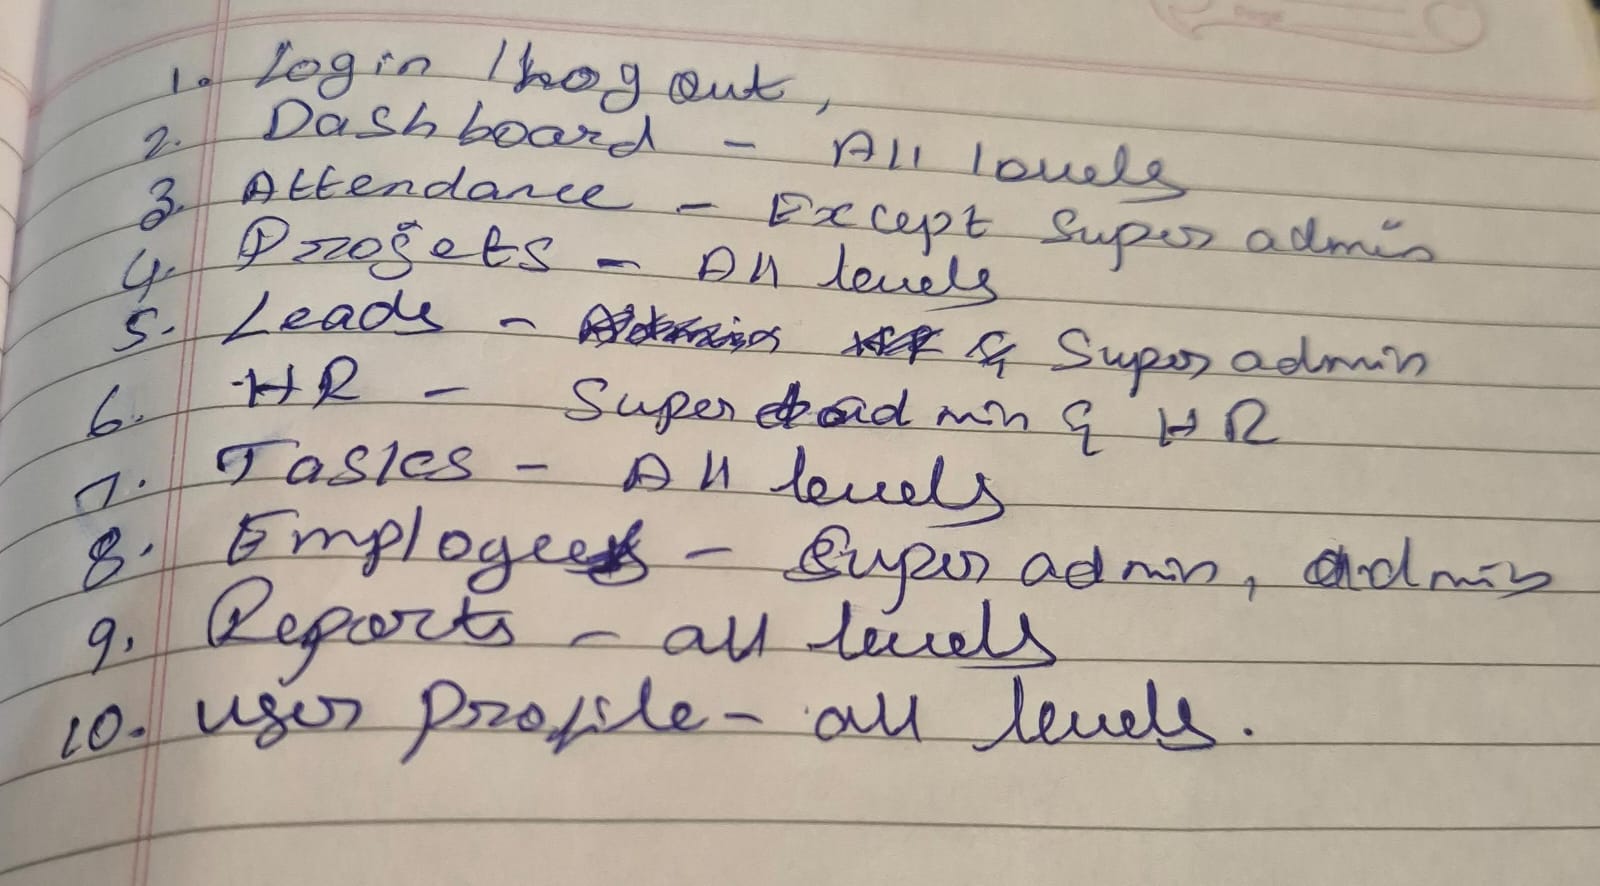 1. Login / Log out,
2. Dashboard - All levels
3. Attendance - Except Super admin
4. Projets - All levels
5. Leads - & Super admin
6. HR - Super admin & HR
7. Tasks - All levels
8. Employees - Super admin, admin
9. Reports - all levels
10. user profile - all levels.